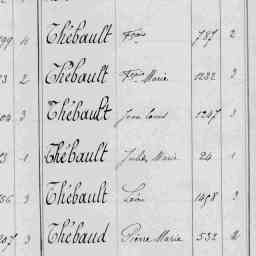 99 4 Thébault Fçois 787 2
3 2 Thébault Fçois Marie 1232 3
04 3 Thébault Jean Louis 1247 3
3 1 Thébault Jules Marie 24 1
56 3 Thébault Léon 1498 3
207 3 Thébaud Pierre Marie 532 2